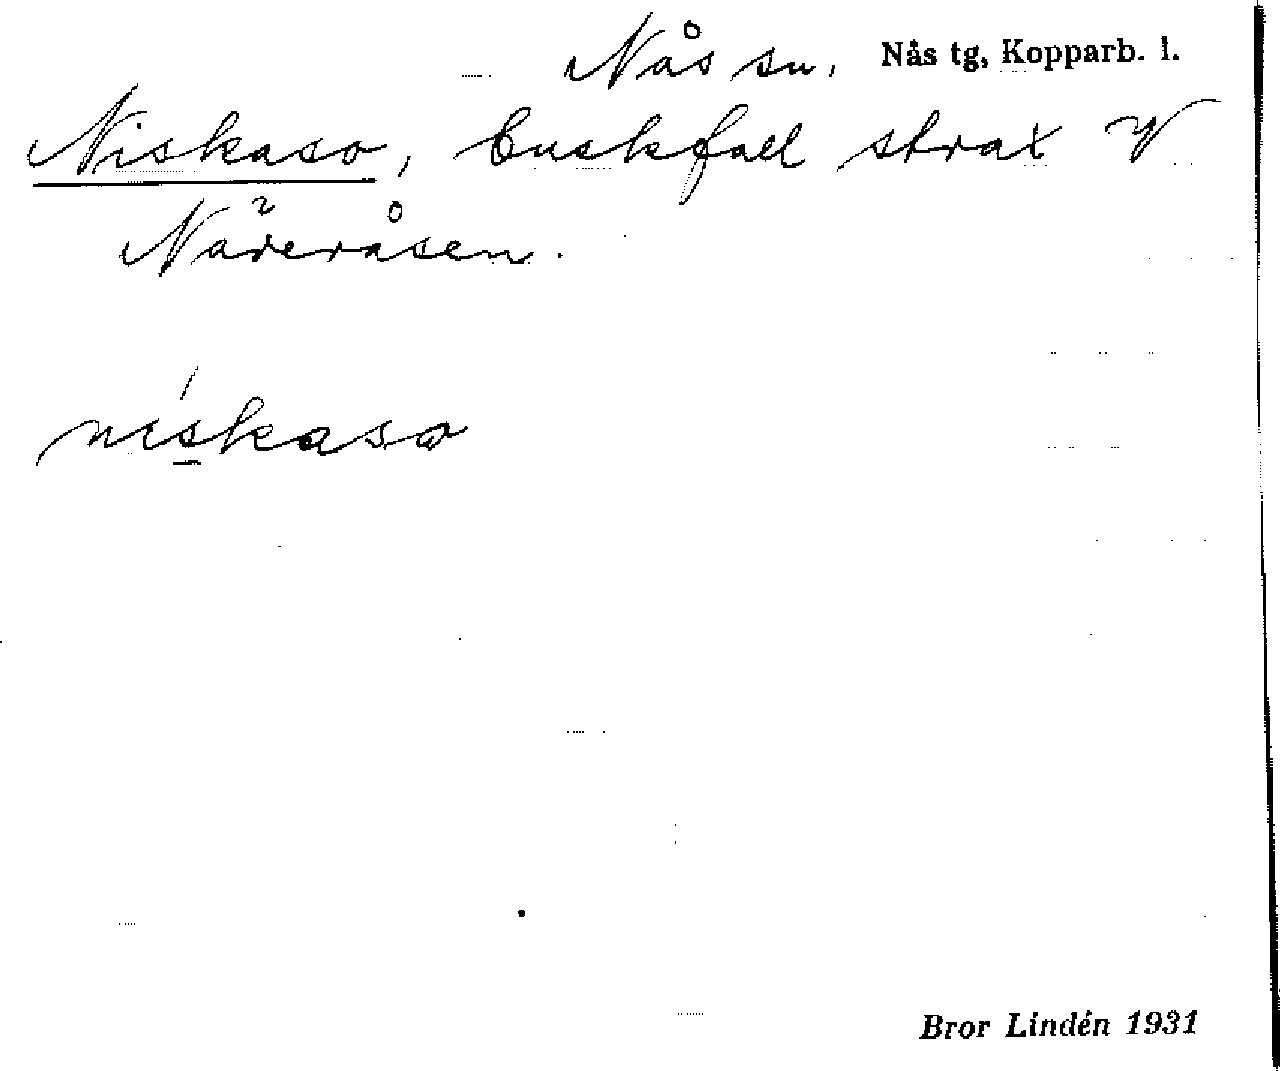 Nås sn, Nås tg, Kopparb. l.
Niskaso, buskfall strax V
Näreråsen.
niskaso
Bror Lindén 1931